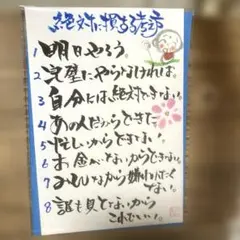 絶対に損する考え方
1 明日やろう。
2 完璧にやらなければ。
3 自分には、絶対できない。
4 あの人だからできた
5 忙しいからできない。
6 お金がないからできない。
7 みんなから嫌われたく
ない。
8 誰も見てないから
これでいい。